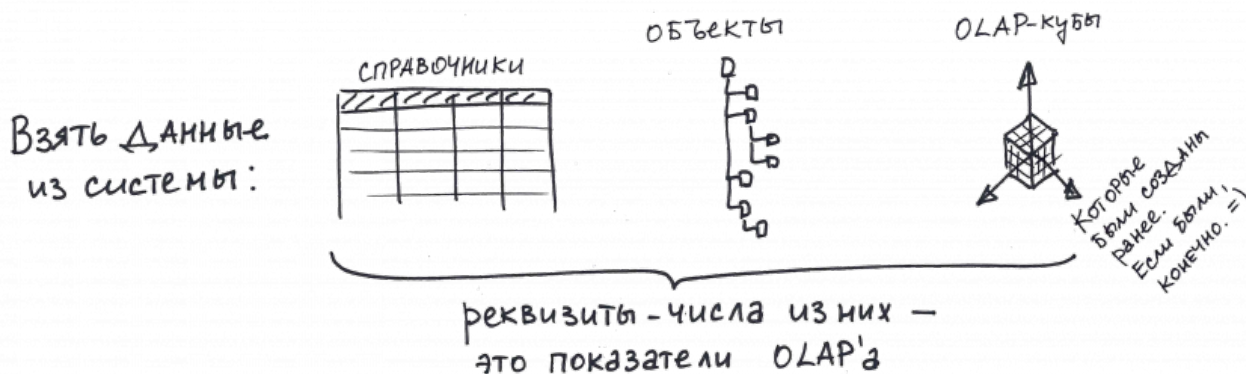 Взять данные
из системы:
СПРАВОЧНИКИ
ОБЪЕКТЫ
OLAP-кубы
Которые
были созданы
ранее.
Если были,
конечно. =)
реквизиты-числа из них –
это показатели OLAP'а